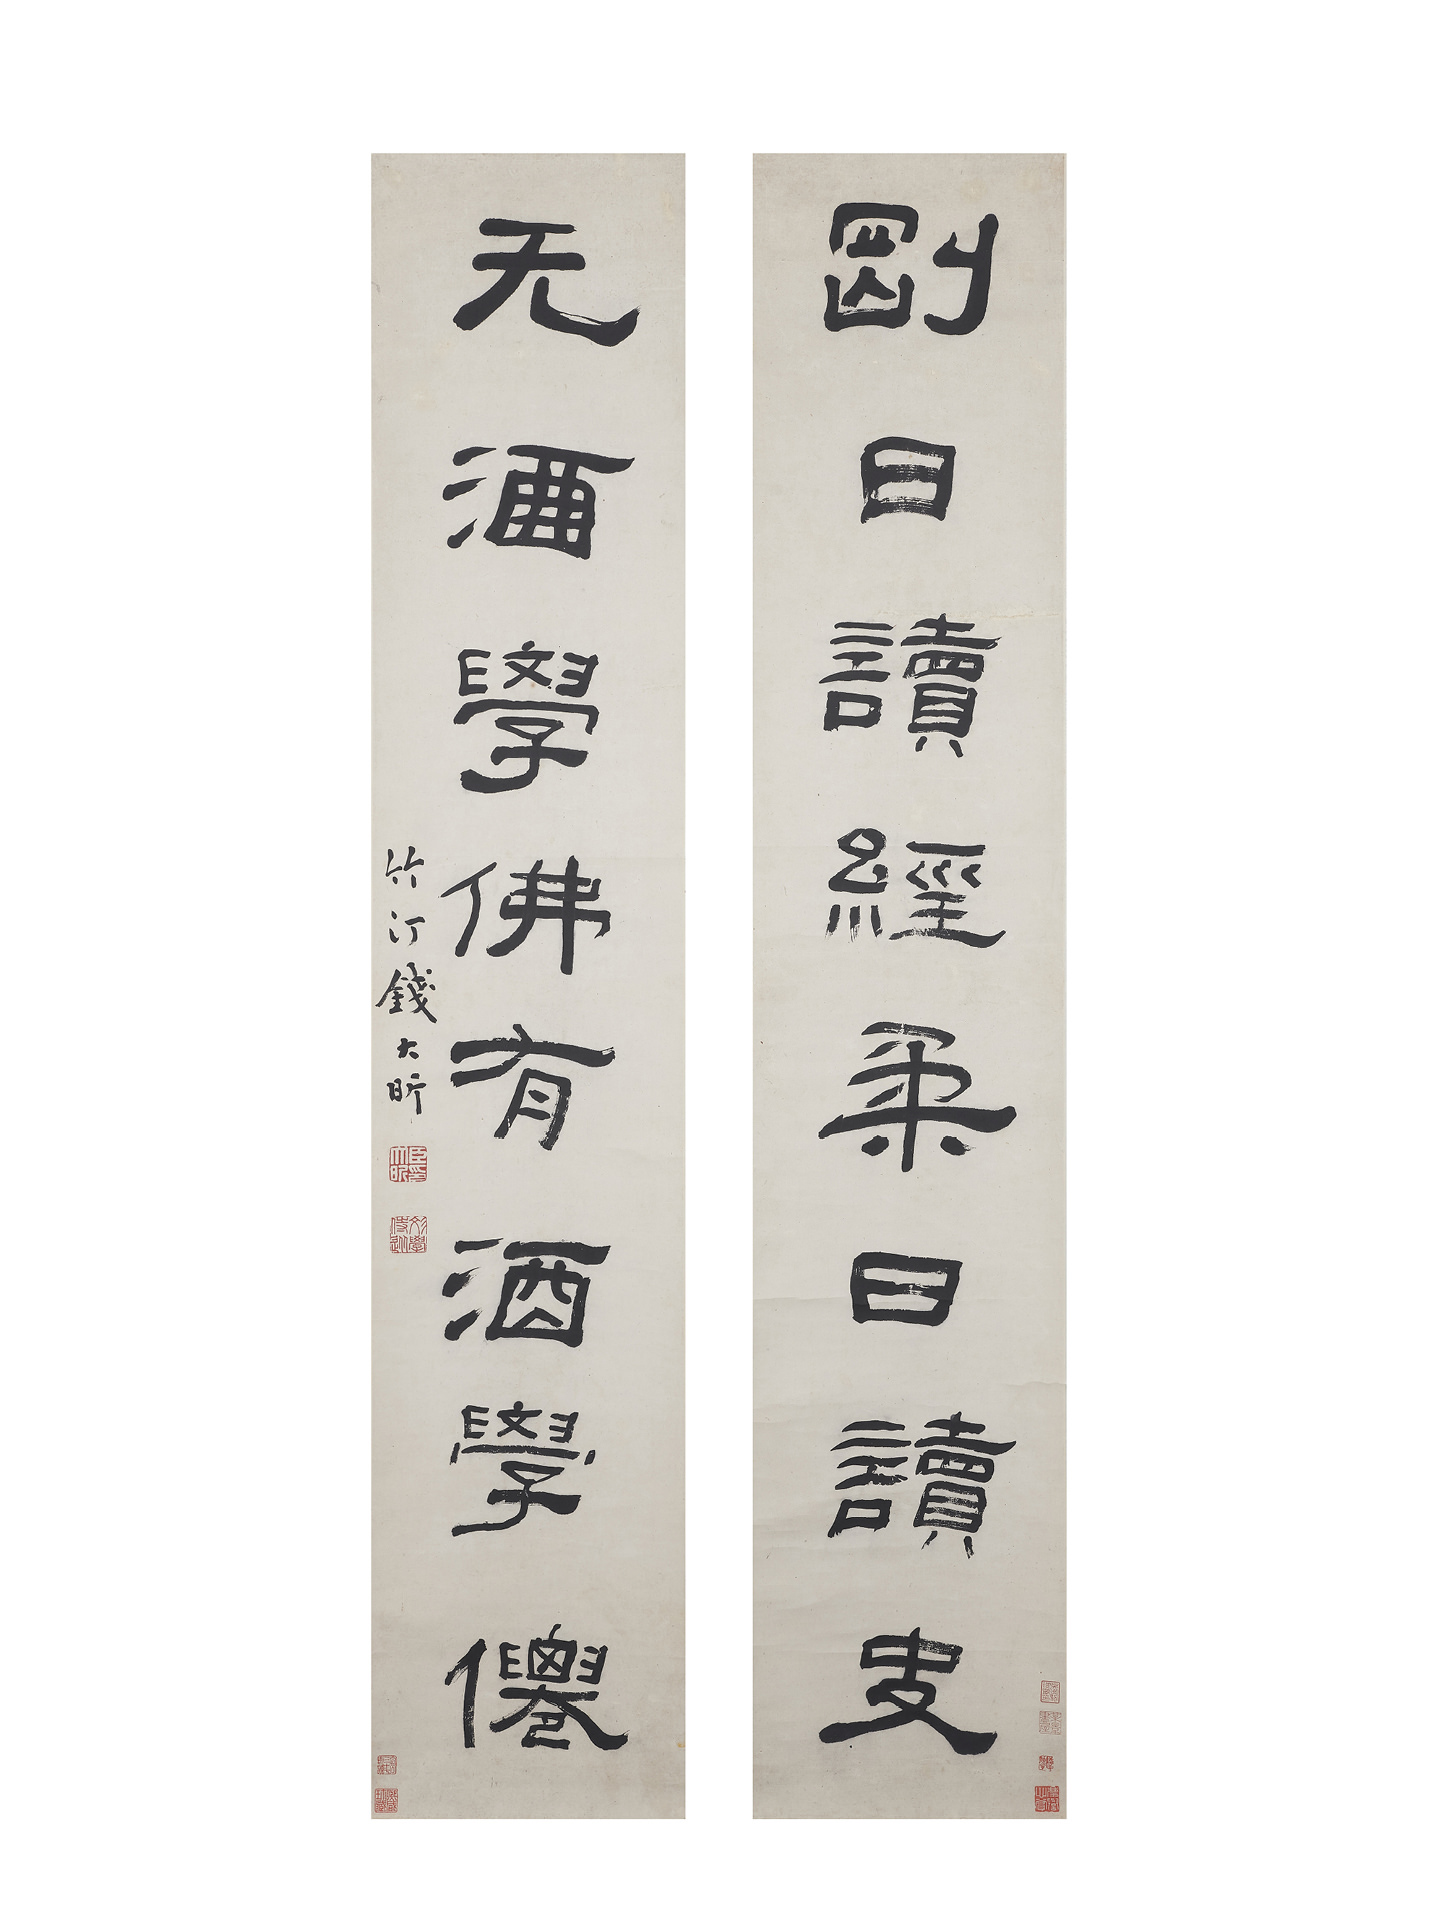 剛日讀經柔日讀史
无酒學佛有酒學僊
竹汀錢大昕
臣大昕印